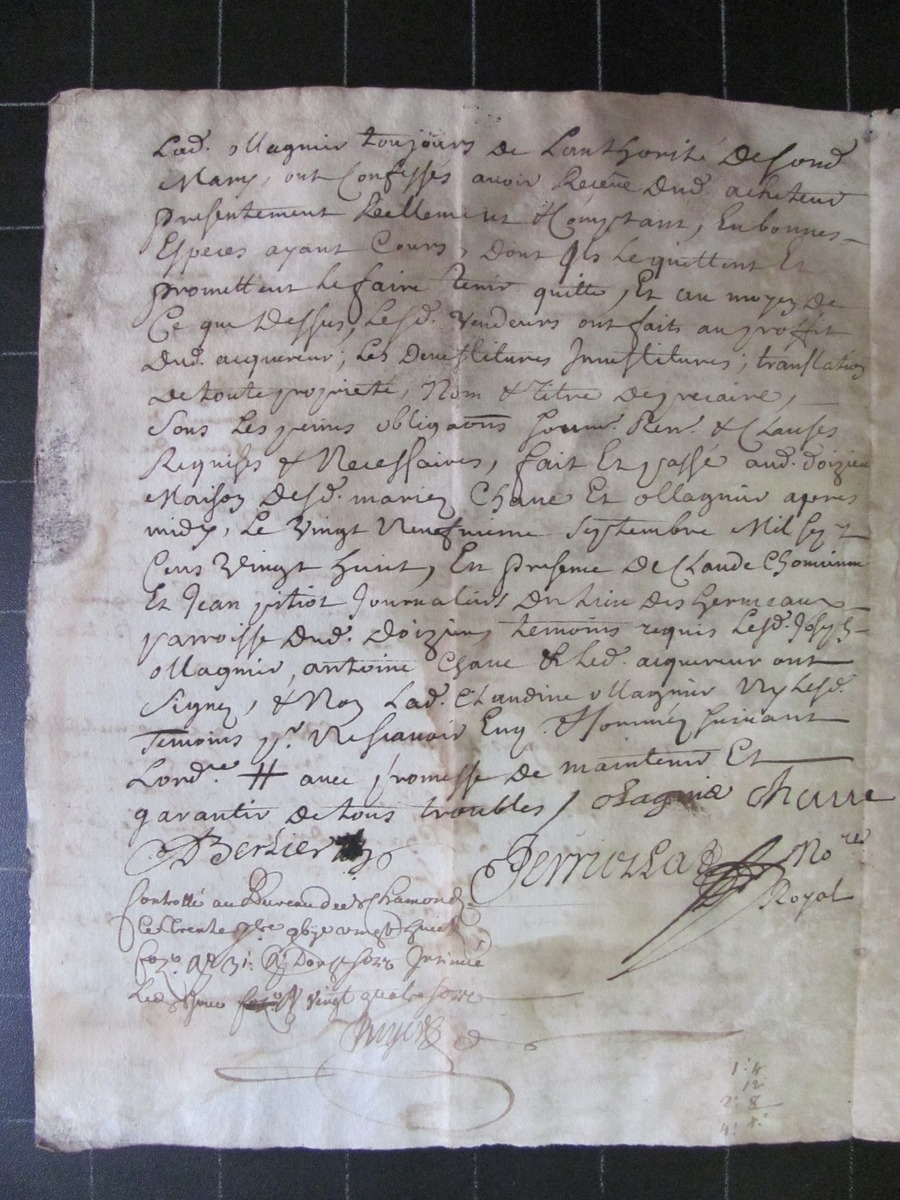 Lad. ollagnier toujours de Lauthorité de sond.
Mary, ont Confessés avoir Receüe dud. acheteur
presentement Reellement & Comptant, En bonnes
Especes ayant Cours, dont Ils le quittent Et
promettent le faire tenir quitte, Et au moyen de
Ce que Dessus, Lesd. vendeurs ont faits au proffit
dud. acquereur, Les Devestitures Investitures, translation
de toute proprieté, Nom & titre de precaire,
Sous Les peines obligaõns soum. Ren. & Clauses
Requises & Necessaires, fait Et passé aud. doizieu
Maison desd. mariez Chave Et ollagnier apres
midy, Le Vingt Neufvieme Septembre Mil sept
Cens Vingt huit, En presence de Claude Chomienne
Et Jean pitiot Journaliers du lieu des hermeaux
parroisse dud. doizieu temoins requis Lesd. Joseph
ollagnier, antoine Chave & led. acquereur ont
Signez, & Non Lad. Claudine ollagnier Ny lesd.
temoins pr. Ne scavoir Enq. & sommez suivant
Lordce. # avec promesse de maintenir Et
garantir de tous troubles / olagnié chave
Berlier
Perriolla No.re
Royal
Controllé au Bureau de st Chamond
le trente 7bre vingt huit
fo. douze sols Insinué
led. Jour vingt quatre sols
1: 4
12
2: 8
4: